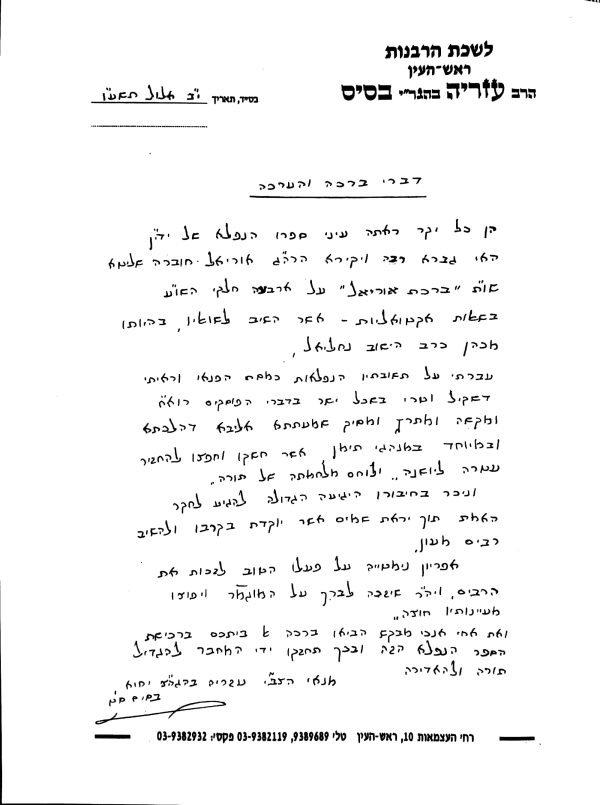 לשכת הרבנות
ראש-העין
הרב עזריה בהגר"י בסיס
בס"ד, תאריך י"ב אלול תשע"ו
דברי ברכה והערכה
הן כל יקר ראתה עיני ספרו הנפלא של ידי"ן
האי גברא רבה ויקירא הרה"ג אוריאל חוברה שליטא
שו"ת "ברכת אוריאל" על ארבעה חלקי השו"ע
בשאלות אקטואליות - אשר השיב לשואליו, בהיותו
מכהן כרב הישוב נחליאל,
עברתי על תשובותיו הנפלאות כמסת הפנאי וראיתי
דשקיל וטרי בשכל ישר בדברי הפוסקים רואה
ומקשה ומתרץ ומסיק שמעתתא אליבא דהלכתא
ובמיוחד במנהגי תימן אשר חשקו וחפצו להחזיר
עטרה ליושנה, ולוחם מלחמתה של תורה.
וניכר בחיבורו היגיעה הגדולה להגיע לחקר
האמת תוך יראת שמים אשר יוקדת בקרבו ולהשיב
רבים מעון,
אפריון נימטייה על פעלו הטוב לזכות את
הרבים, ויה"ר שיזכה לברך על המוגמר ויפוצו
מעיינותיו חוצה,
ואת אחי אנכי מבקש הביאו ברכה אל ביתכם ברכישת
הספר הנפלא הזה ובכך תחזקו ידי המחבר להגדיל
תורה ולהאדירה
מנאי הצב"י עזריה בהגה"צ יחיא
בסיס ס"ט
רחי העצמאות 10, ראש-העין טלי 9389689, 03-9382119 פקסי: 03-9382932